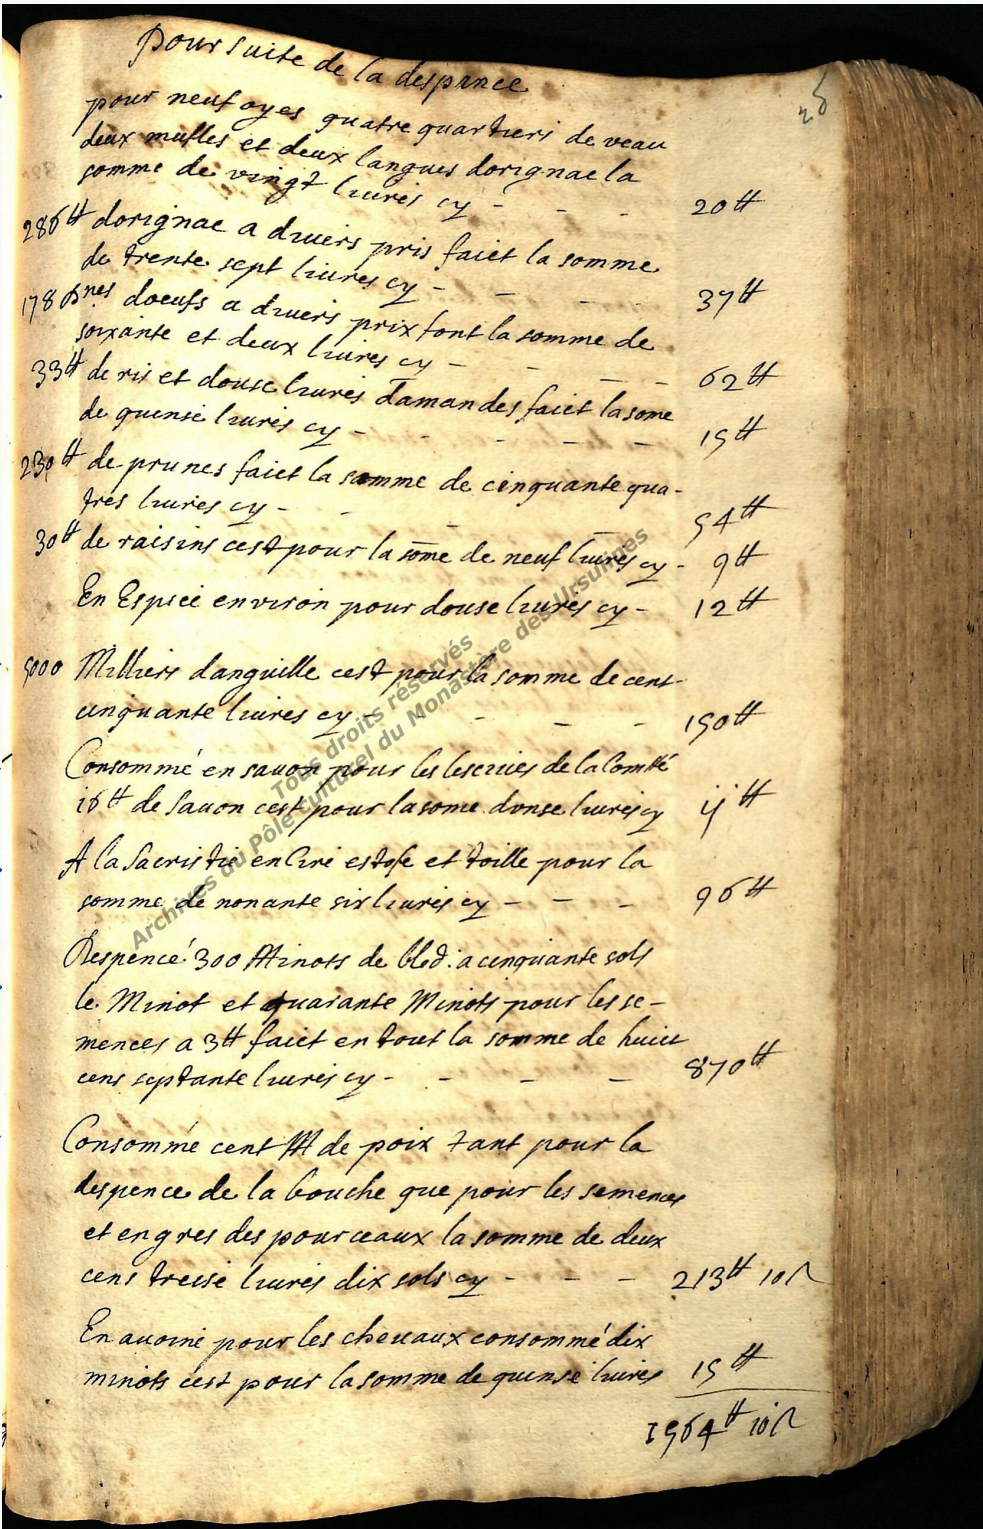 pour suite de la despance
pour neuf oyes quatre quartiers de veau
deux mufles et deux langues dorignac la
somme de vingt livres cy - - - 20 ₶
286 ₶ dorignac a divers pris faict la somme
de trente sept livres cy - - - 37 ₶
178 doeufs a divers prix font la somme de
soixante et deux livres cy - - - 62 ₶
33 ₶ de ris et douse livres damandes faict la some
de quinse livres cy - - - 15 ₶
230 ₶ de prunes faict la somme de cinquante qua-
tres livres cy - - - 54 ₶
30 ₶ de raisins cest pour la some de neuf livres cy - 9 ₶
En Espice environ pour douse livres cy - 12 ₶
5000 Milliers danguille cest pour la somme de cent
cinquante livres cy - - - 150 ₶
Consommé en savon pour les lescives de la Comté
16 ₶ de Savon cest pour la some donse livres cy ij ₶
A la Sacristie en Cire estofe et toille pour la
somme de nonante six livres cy - - - 96 ₶
Despencé 300 Minots de bled. a cinquante sols
le Minot et quarante Minots pour les se-
mences a 3 ₶ faict en tout la somme de huict
cens septante livres cy - - - 870 ₶
Consommé cent M de poix tant pour la
despence de la bouche que pour les semences
et engres des pourceaux la somme de deux
cens treise livres dix sols cy - - - 213 ₶ 10 s
En avoine pour les chevaux consommé dix
minots cest pour la somme de quinse livres 15 ₶
1564 ₶ 10 s
Tous droits réservés
Archives du Pôle culturel du Monastère des Ursulines